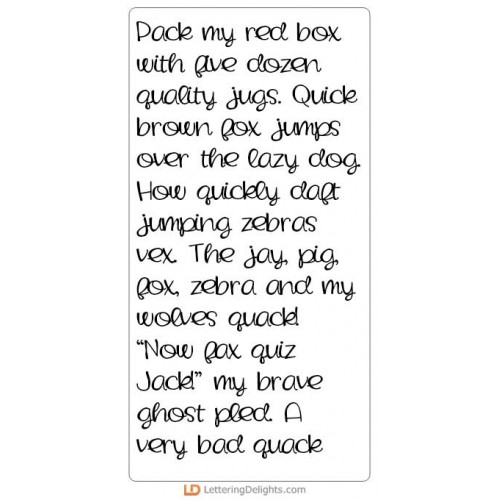 Pack my red box
with five dozen
quality jugs. Quick
brown fox jumps
over the lazy dog.
How quickly daft
jumping zebras
vex. The jay, pig,
fox, zebra and my
wolves quack!
“Now fax quiz
Jack!” my brave
ghost pled. A
very bad quack
LD LetteringDelights.com